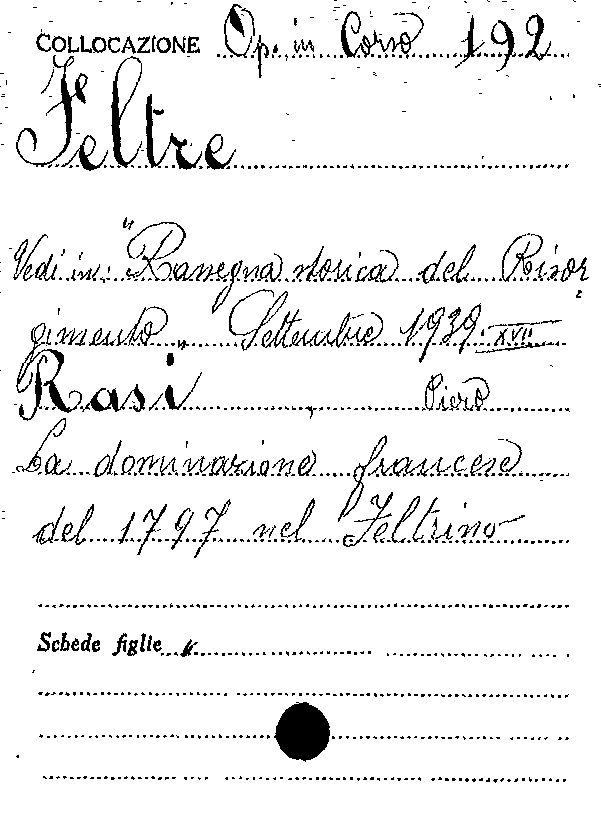 COLLOCAZIONE Op. in Corso 192
Feltre
Vedi in: "Rassegna storica del Risor
gimento" Settembre 1939. XVII
Rasi Piero
La dominazione francese
del 1797 nel Feltrino
Schede figlie "